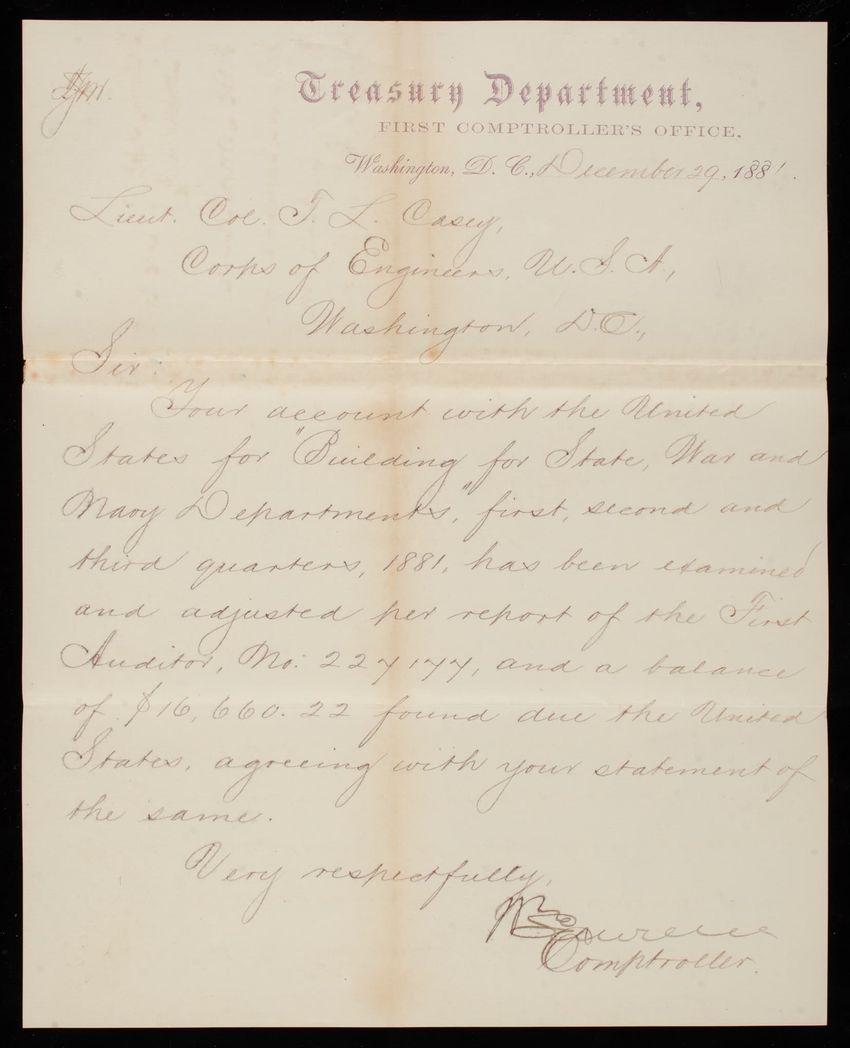 Treasury Department,
FIRST COMPTROLLER'S OFFICE.
Washington, D. C., December 29, 1881.
Lieut. Col. T. L. Casey,
Corps of Engineers, U. S. A.,
Washington, D.C.,
Sir:
Your account with the United
States for "Building for State, War and
Navy Departments," first, second and
third quarters, 1881, has been examined
and adjusted per report of the First
Auditor, No: 227177, and a balance
of $16,660.22 found due the United
States, agreeing with your statement of
the same.
Very respectfully,
Lawrence
Comptroller.